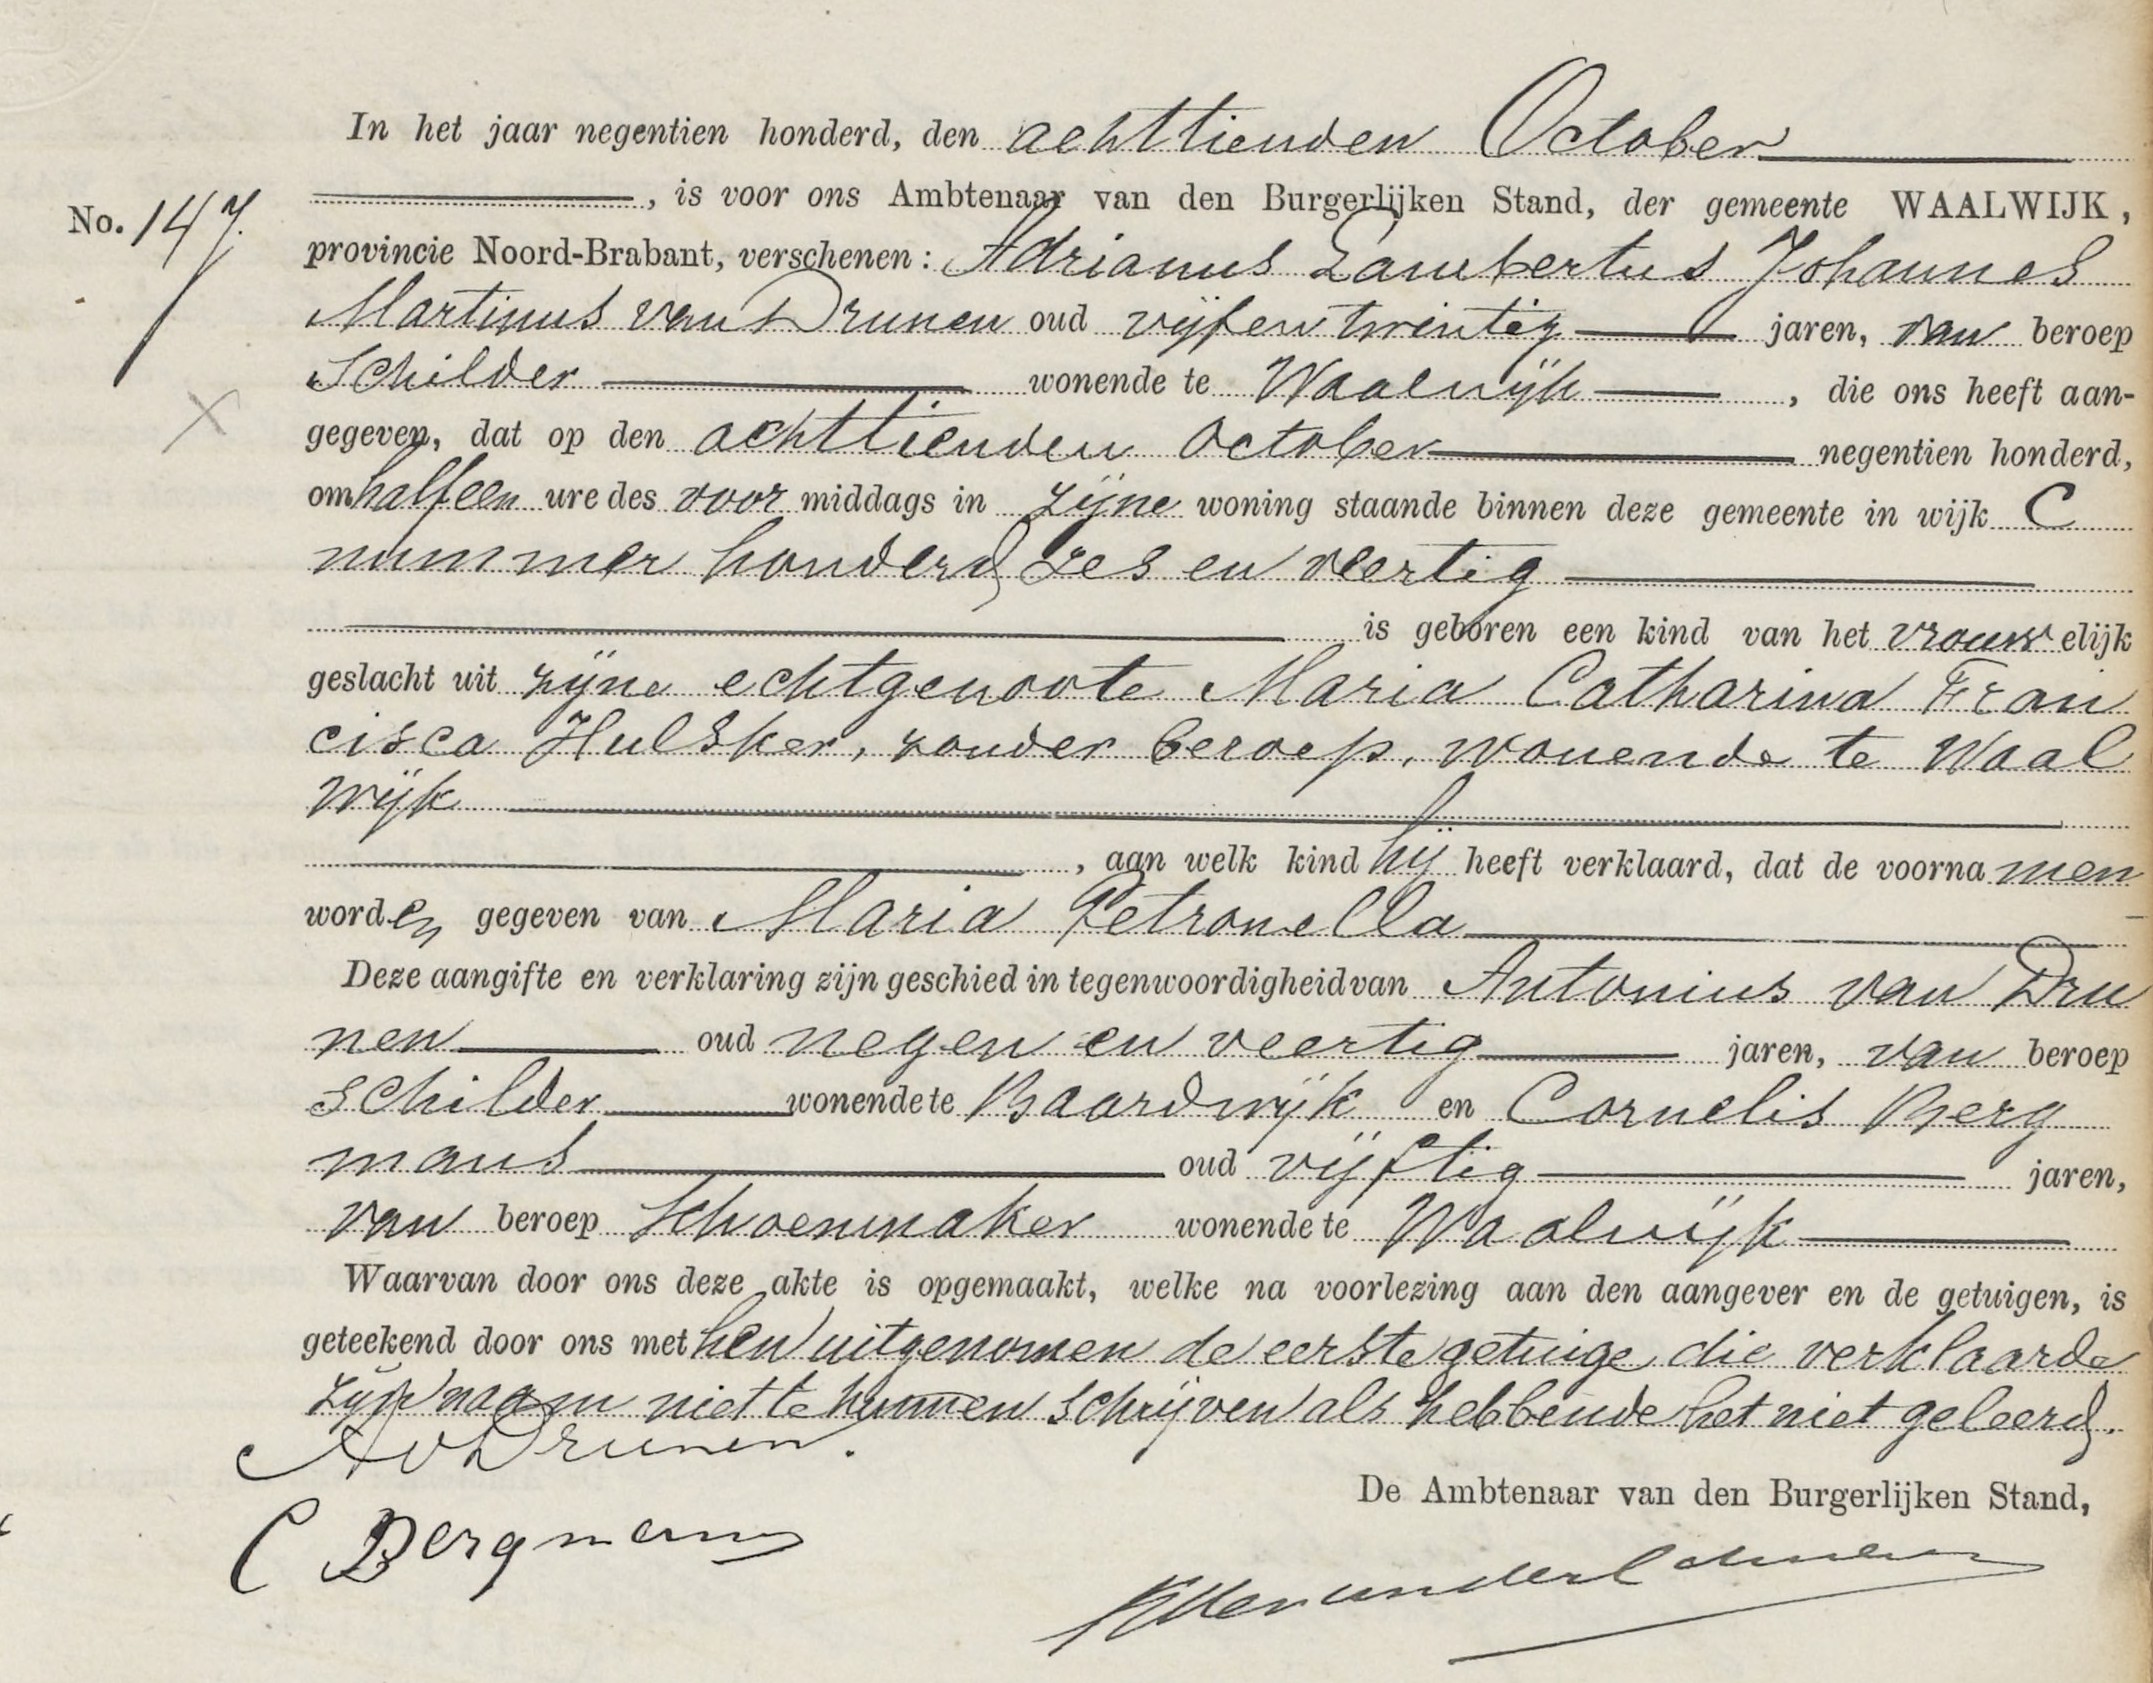 In het jaar negentien honderd, den achttienden October
No. 147. , is voor ons Ambtenaar van den Burgerlijken Stand, der gemeente WAALWIJK,
provincie Noord-Brabant, verschenen: Adrianus Lambertus Johannes
Martinus van Drunen oud vijfentwintig jaren, van beroep
Schilder wonende te Waalwijk, die ons heeft aan-
gegeven, dat op den achttienden October negentien honderd,
om half een ure des voor middags in zijne woning staande binnen deze gemeente in wijk C
nummer honderd zes en veertig
is geboren een kind van het vrouwelijk
geslacht uit zijne echtgenoote Maria Catharina Fran
cisca Hulsker, zonder beroep, wonende te Waal
wijk
, aan welk kind hij heeft verklaard, dat de voornamen
worden gegeven van Maria Petronella
Deze aangifte en verklaring zijn geschied in tegenwoordigheid van Antonius van Dru
nen oud negen en veertig jaren, van beroep
schilder wonende te Baardwijk en Cornelis Berg
mans oud vijftig jaren,
van beroep Schoenmaker wonende te Waalwijk
Waarvan door ons deze akte is opgemaakt, welke na voorlezing aan den aangever en de getuigen, is
geteekend door ons met hen uitgenomen de eerste getuige die verklaarde
zijn naam niet te kunnen schrijven als hebbende het niet geleerd.
A v Drunen.
De Ambtenaar van den Burgerlijken Stand,
C Bergmans